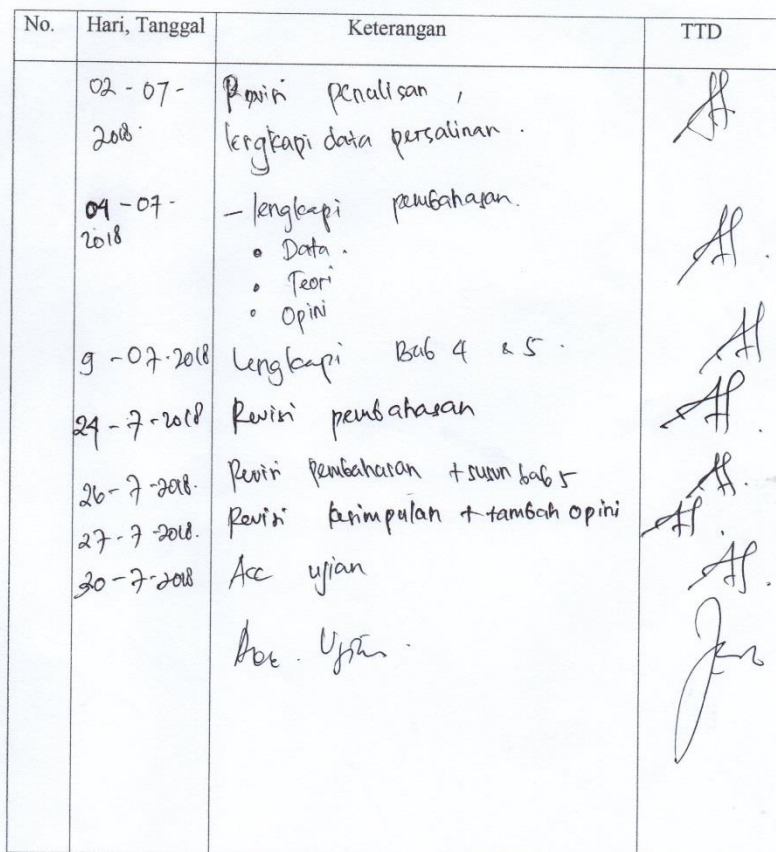 No. Hari, Tanggal Keterangan TTD
02 - 07 - Revisi penulisan,
2018. lengkapi data persalinan.
04 - 07 - - lengkapi pembahasan.
2018 • Data.
• Teori
• Opini
9 - 07 - 2018 Lengkapi Bab 4 & 5.
24 - 7 - 2018 Revisi pembahasan
26 - 7 - 2018. Revisi pembahasan + susun bab 5
27 - 7 - 2018. Revisi kesimpulan + tambah opini
30 - 7 - 2018 Acc ujian
Acc. Ujian.